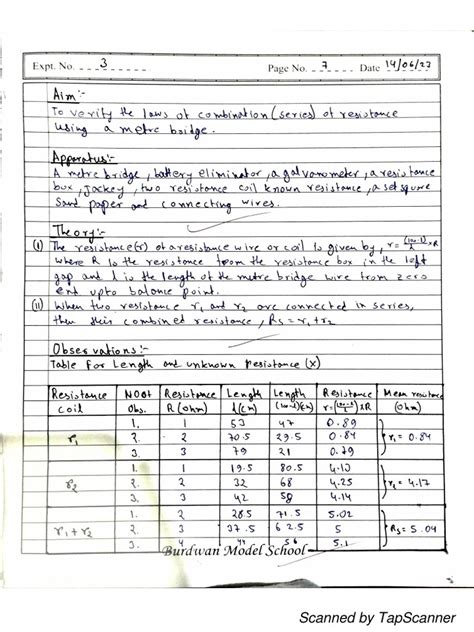 Expt. No. 3 Page No. 7 Date 14/06/23
Aim:-
To verify the laws of combination (series) of resistance
using a metre bridge.
Apparatus:-
A metre bridge, battery eliminator, a galvanometer, a resistance
box, Jockey, two resistance coil known resistance, a set square
Sand paper and connecting wires.
Theory:-
(i) The resistance(r) of a resistance wire or coil is given by, r = (100-l)/l xR
where R is the resistance from the resistance box in the left
gap and l is the length of the metre bridge wire from zero
end upto balance point.
(ii) When two resistance r1 and r2 are connected in series,
then their combined resistance, Rs = r1+r2
Observations:-
Table For Length and unknown Resistance (X)
Resistance Noof Resistance Length Length Resistance Mean resistance
coil Obs. R (ohm) l(cm) (100-l)(cm) r=(100-l)/l xR (ohm)
1. 1 53 47 0.89
r1 2. 2 70.5 29.5 0.84 r1 = 0.84
3. 3 79 21 0.79
1. 1 19.5 80.5 4.13
r2 2. 2 32 68 4.25 r2 = 4.17
3. 3 42 58 4.14
1. 2 28.5 71.5 5.02
r1+r2 2. 3 37.5 62.5 5 Rs = 5.04
3. 4 44 56 5.1
Burdwan Model School
Scanned by TapScanner